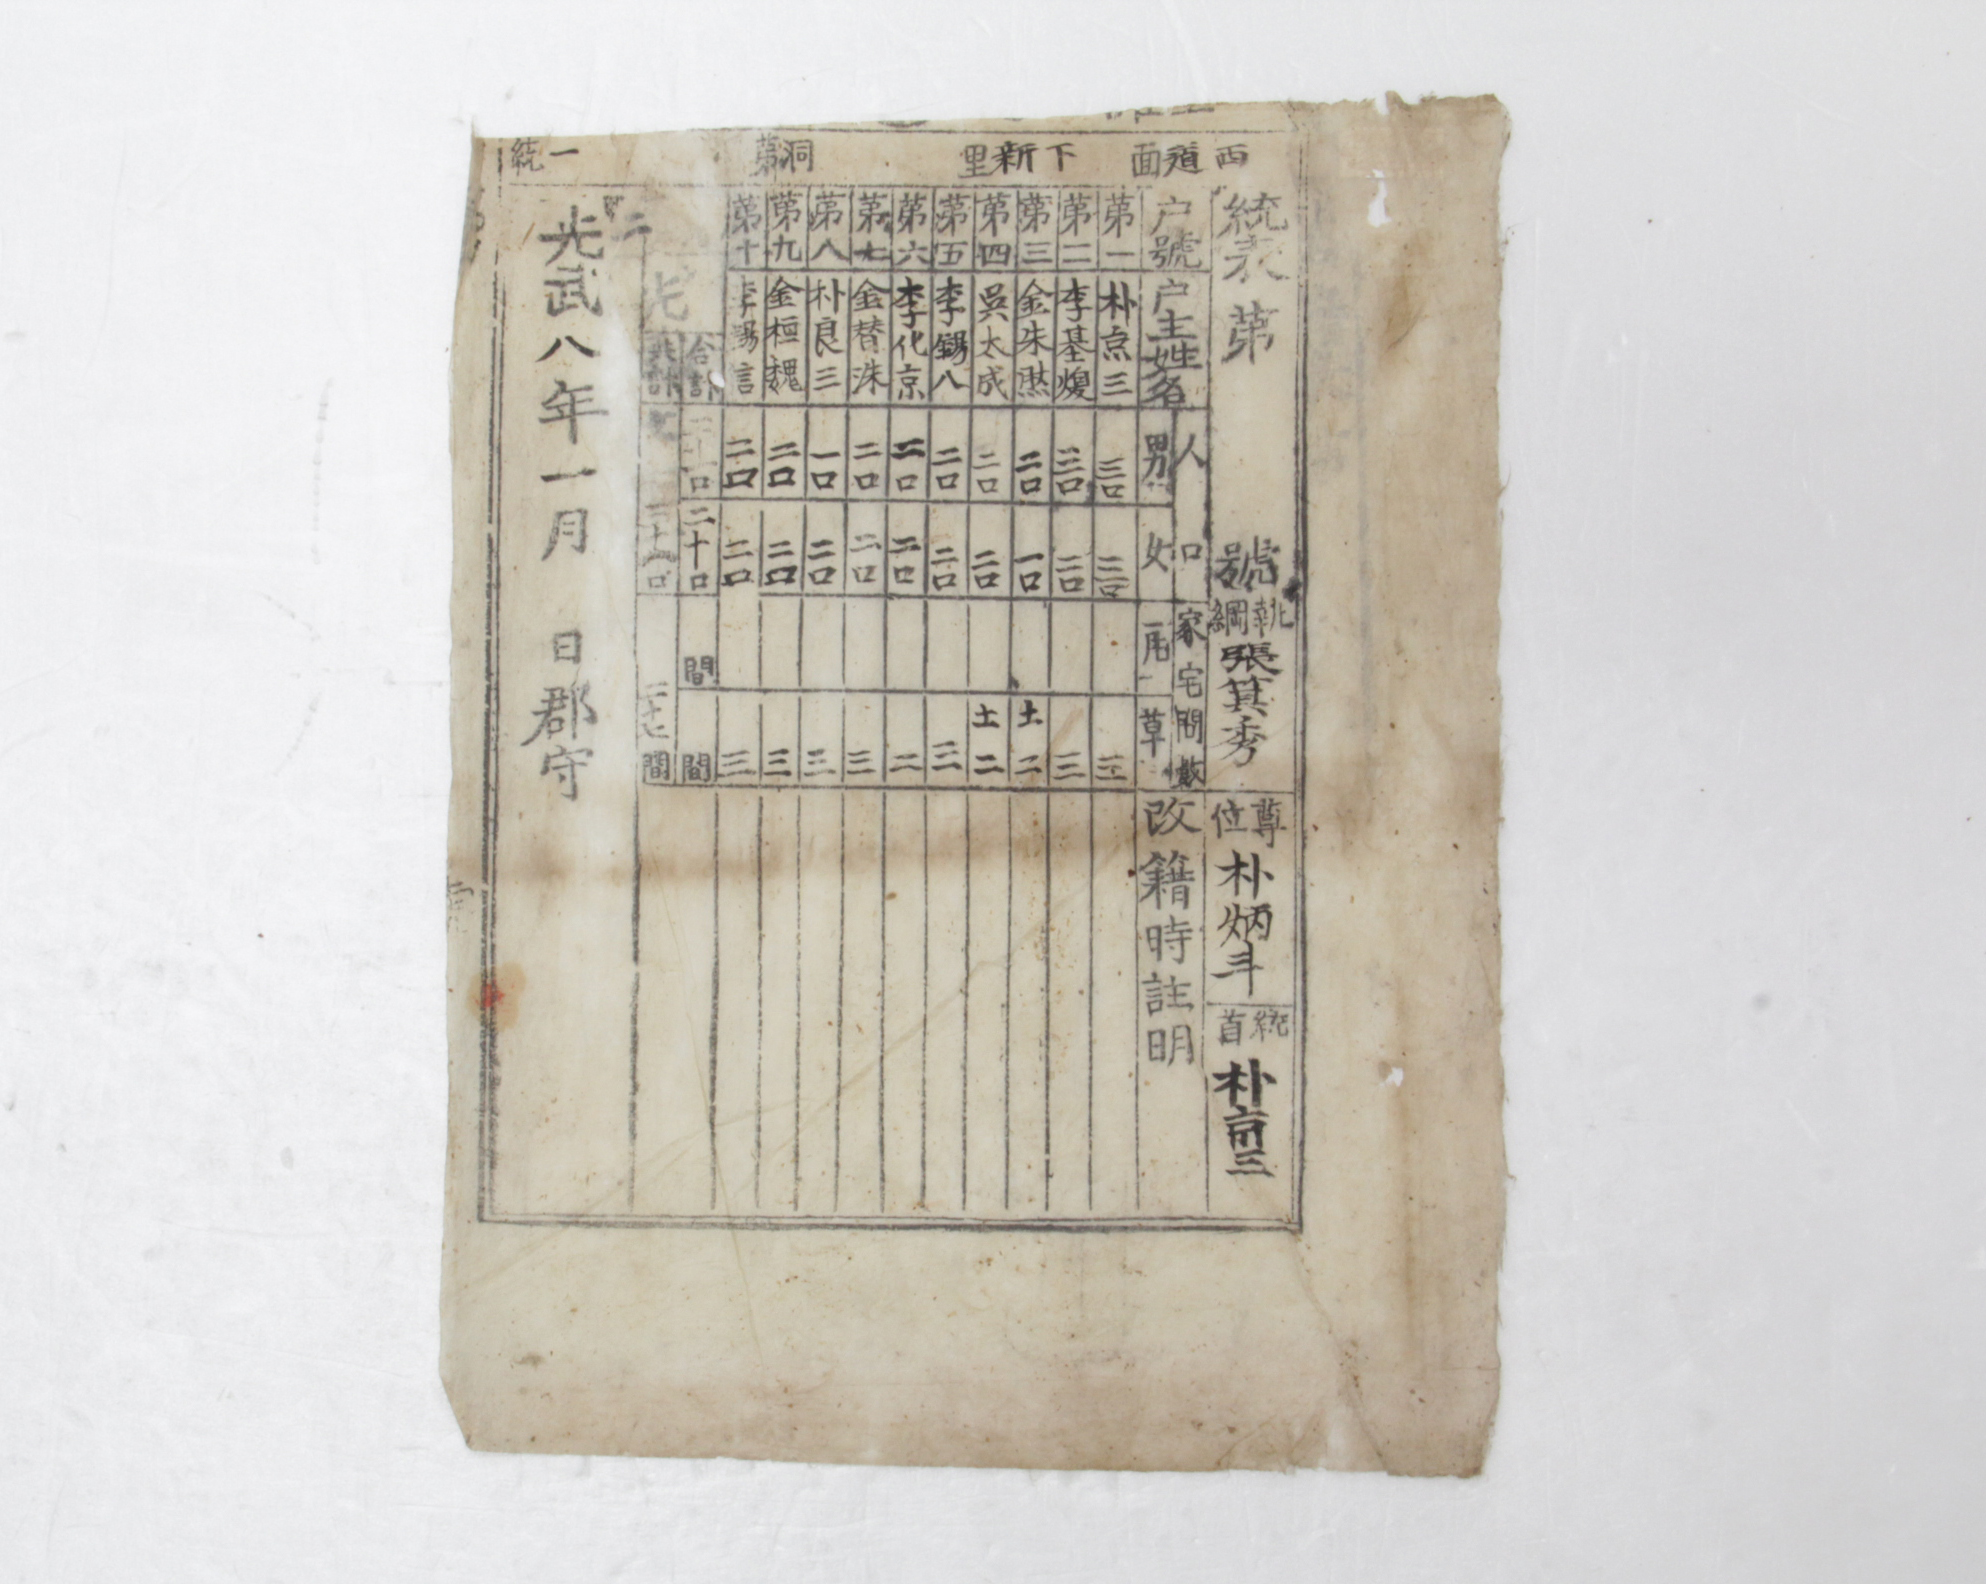 西道面 下新里 洞第 一統
統表 第 號
執綱 張箕秀
尊位 朴炳斗
統首 朴京三
户號 户主姓名 人口 男 女 家宅間數 瓦 草 改籍時註明
第一 朴京三 三口 三口 三
第二 李基煥 三口 三口 三
第三 金朱 二口 一口 土二
第四 吳太成 二口 二口 土二
第五 李錫八 二口 二口 三
第六 李化京 二口 二口 二
第七 金替洙 二口 二口 三
第八 朴良三 一口 二口 三
第九 金桓魏 二口 二口 三
第十 李錫言 二口 二口 三
合計 口 二十口 間 間
共計 口 間
光武八年一月 日 郡守